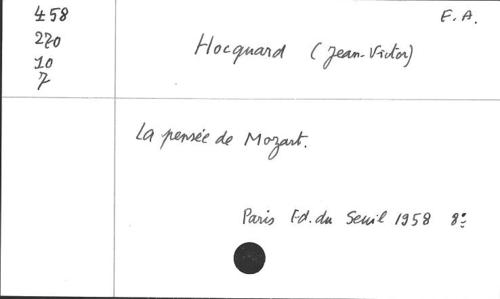 458
270
10
7
F.A.
Hocquard (Jean-Victor)
La pensée de Mozart.
Paris Ed. du Seuil 1958 8º